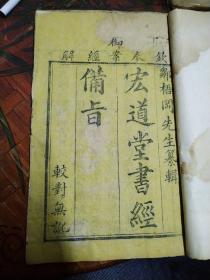 欽奉御案經解
鄒梧岡先生纂輯
宏道堂書經
備旨
較對無訛